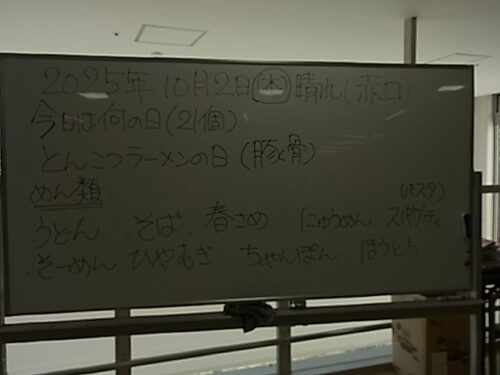 2025年10月2日(木)晴れ(赤口)
今日は何の日(21個)
とんこつラーメンの日(豚骨)
めん類
(パスタ)
うどん そば 春さめ にゅうめん スパゲティ
そーめん ひやむぎ ちゃんぽん ほうとう